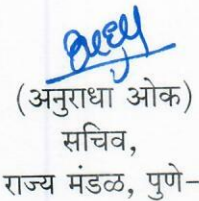 (अनुराधा ओक)
सचिव,
राज्य मंडळ, पुणे-